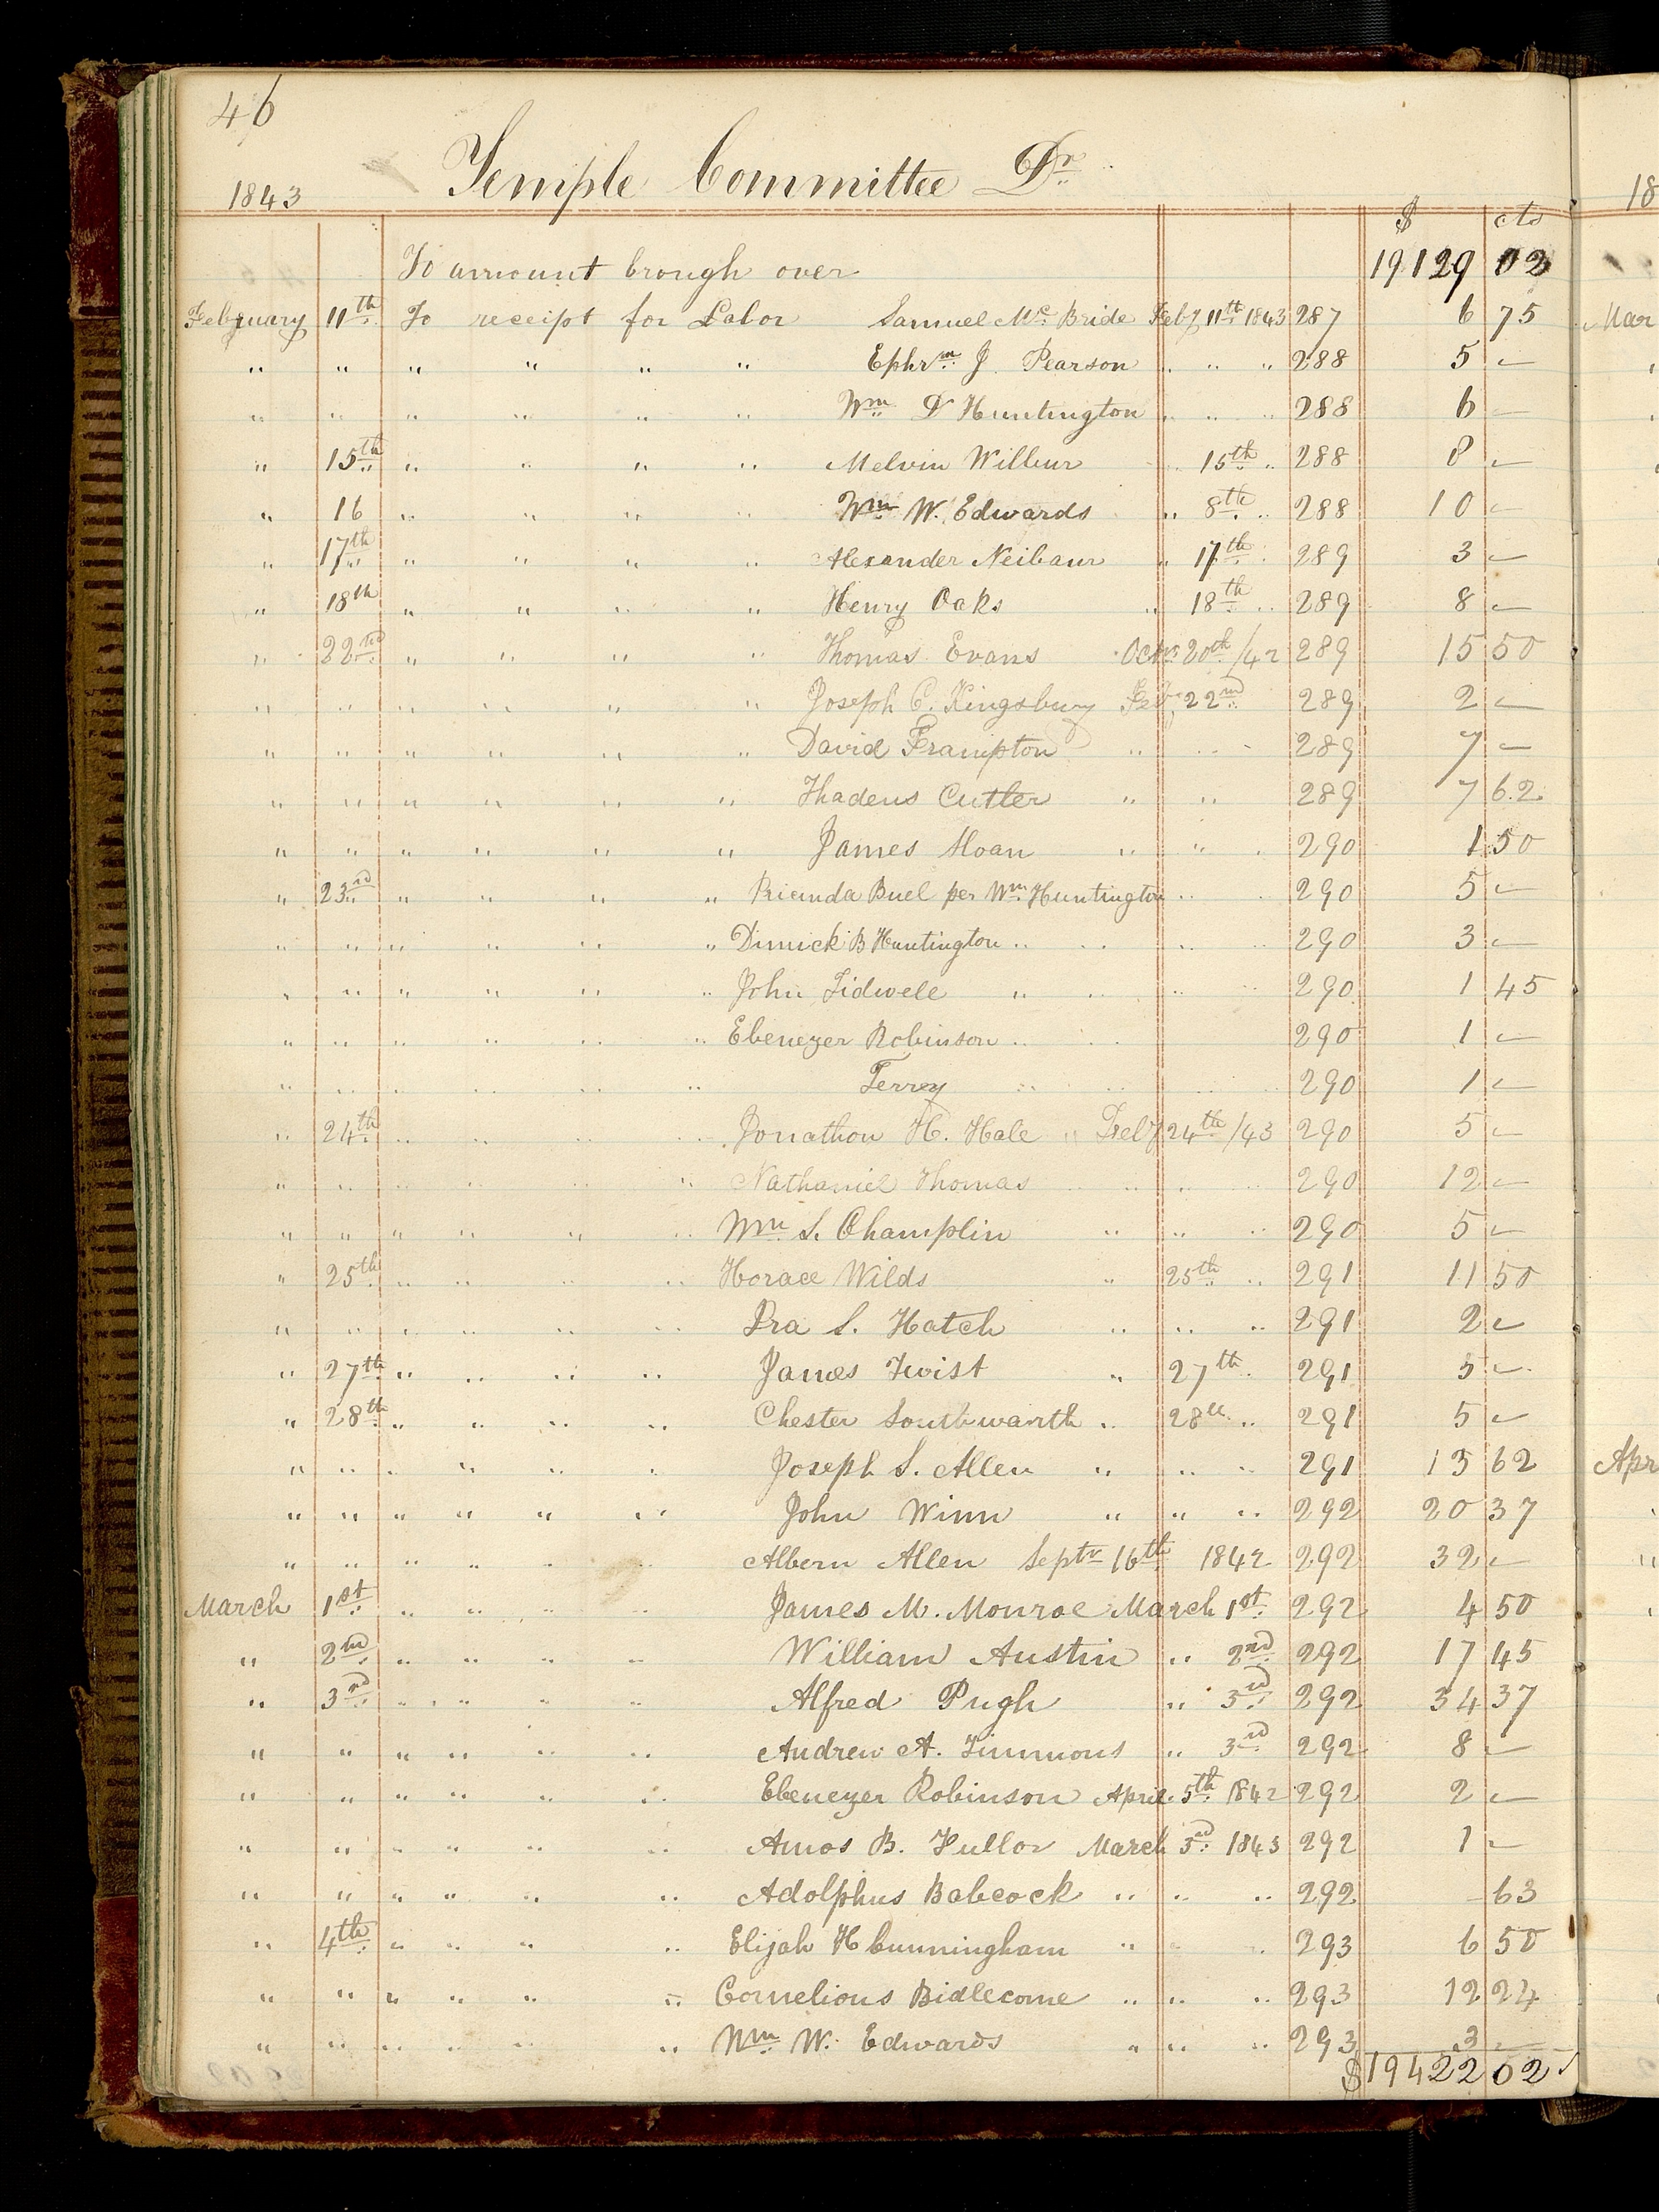 46
1843 Temple Committee Dr 18
$ cts
To amount brough over 19129 02
February 11th To receipt for Labor Samuel Mc Bride Feby 11th 1843 287 6 75 Mar
" " " " " " Ephrm J Pearson " " " 288 5 –
" " " " " " Wm D Huntington " " " 288 6 –
" 15th " " " " Melvin Wilbur " 15th " 288 8 –
" 16 " " " " Wm W. Edwards " 8th " 288 10 –
" 17th " " " " Alexander Neibaur " 17th " 289 3 –
" 18th " " " " Henry Oaks " 18th " 289 8 –
" 22nd " " " " Thomas Evans Octr 20th /42 289 15 50
" " " " " " Joseph C. Kingsbury Feby 22nd 289 2 –
" " " " " " David Frampton " " " 289 7 –
" " " " " " Thadeus Cutler " " 289 7 62
" " " " " " James Sloan " " " 290 1 50
" 23rd " " " " Pricinda Buel per Wm Huntington " " 290 5 –
" " " " " " Dimick B Huntington " " " " 290 3 –
" " " " " " John Tidwell " " " " 290 1 45
" " " " " " Ebenezer Robinson " " 290 1 –
" " " " " " Terrey " " " " 290 1 –
" 24th " " " " Jonathon H. Hale " Feby 24th /43 290 5 –
" " " " " " Nathaniel Thomas " " " " 290 12 –
" " " " " " Wm S. Champlin " " " 290 5 –
" 25th " " " " Horace Wilds " 25th " 291 11 50
" " " " " " Ira S. Hatch " " " 291 2 –
" 27th " " " " James Twist " 27th " 291 5 –
" 28th " " " " Chester Southwarth " 28th " 291 5 –
" " " " " " Joseph S. Allen " " " 291 13 62 Apr
" " " " " " John Winn " " " 292 20 37
" " " " " " Albern Allen Septr 16th 1842 292 32 –
March 1st " " " " James M. Monroe March 1st 292 4 50
" 2nd " " " " William Austin " 2nd 292 17 45
" 3rd " " " " Alfred Pugh " 3rd 292 34 37
" " " " " " Andrew A. Timmons " 3rd 292 8 –
" " " " " " Ebenezer Robinson April 5th 1842 292 2 –
" " " " " " Amos B. Fullor March 3rd 1843 292 1 –
" " " " " " Adolphus Babcock " " " 292 – 63
" 4th " " " " Elijah H Cunningham " " " 293 6 50
" " " " " " Cornelious Bidlecome " " " 293 12 24
" " " " " " Wm W. Edwards " " " 293 3 –
$19422 02